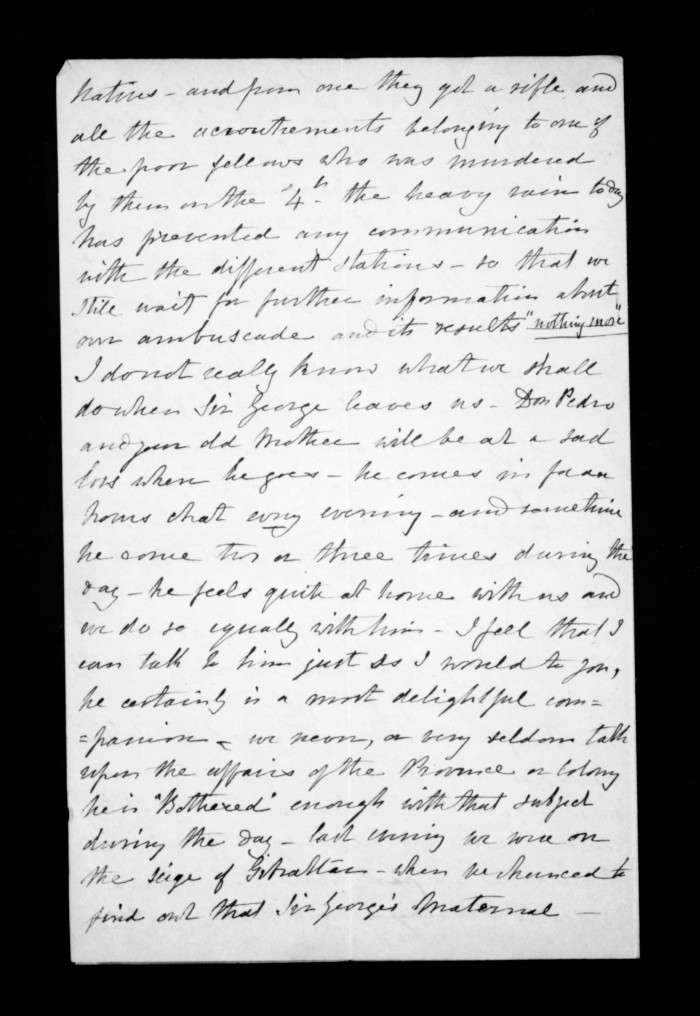 Natives - and from one they got a rifle and
all the accoutrements belonging to one of
the poor fellows who was murdered
by them on the "4th- the heavy rain today
has prevented any communication
with the different stations - so that we
still wait for further information about
our ambuscade and its results "nothing more"
I do not really know what we shall
do when Sir George leaves us - Don Pedro
and your old Mother will be at a sad
loss when he goes - he comes in for an
hours chat every evening - and sometime
he come two or three times during the
day - he feels quite at home with us and
we do so equally with him - I feel that I
can talk to him just as I would to you,
he certainly is a most delightful com=
=panion - we never, or very seldom talk
upon the affairs of the Province or Colony
he is "Bothered" enough with that subject
during the day - last evening we were on
the seige of Gibraltar - when we chanced to
find out that Sir George's Maternal -